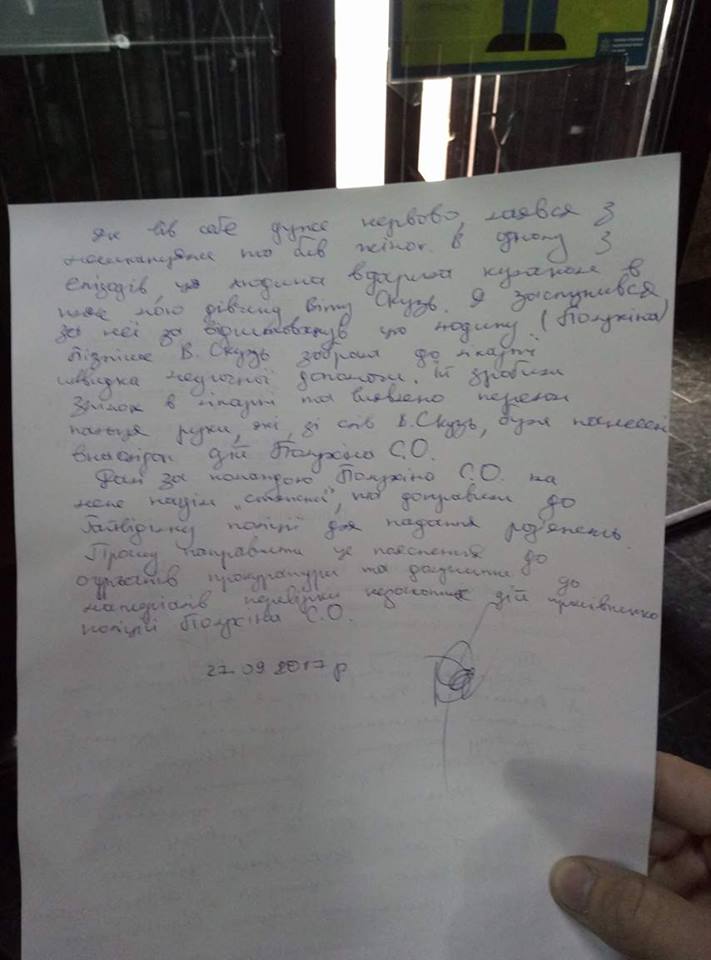 як вів себе дуже нервово, лаявся з
та бив жінок. В одному з
епізодів ця людина вдарила кулаком в
мою дівчину Віту Скузь. Я заступився
за неї за цю людину (Полухіна)
Пізніше В. Скузь забрала до лікарні
швидка медична допомога. Їй зробили
знімок в лікарні та виявлено перелом
пальця руки, які, зі слів В. Скузь, були нанесені
внаслідок дій Полухіна С.О.
Далі за командою Полухіна С.О. на
мене наділи та доправили до
відділку поліції для надання роз'яснень.
Прошу направити це пояснення до
органів прокуратури та долучити до
матеріалів перевірки незаконних дій працівника
поліції Полухіна С.О.
27.09.2017 р